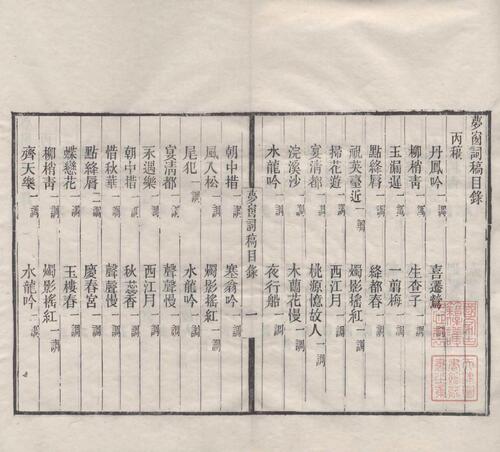 夢窗詞稿目錄
丙稿
丹鳳吟一調 喜遷鶯一調
柳梢青一調 生查子一調
玉漏遲一調 一剪梅一調
點絳脣一調 絳都春一調
祝英臺近一調 燭影搖紅一調
掃花遊一調 西江月一調
宴清都一調 桃源憶故人一調
浣溪沙一調 木蘭花慢一調
水龍吟一調 夜行船一調
夢窗詞稿目錄 一
朝中措一調 塞翁吟一調
風入松一調 燭影搖紅一調
尾犯一調 水龍吟一調
宴清都一調 聲聲慢一調
永遇樂一調 西江月一調
朝中措一調 秋蕊香一調
惜秋華一調 聲聲慢一調
點絳脣二調 慶春宮一調
蝶戀花一調 玉樓春一調
柳梢青一調 燭影搖紅一調
齊天樂一調 水龍吟二調